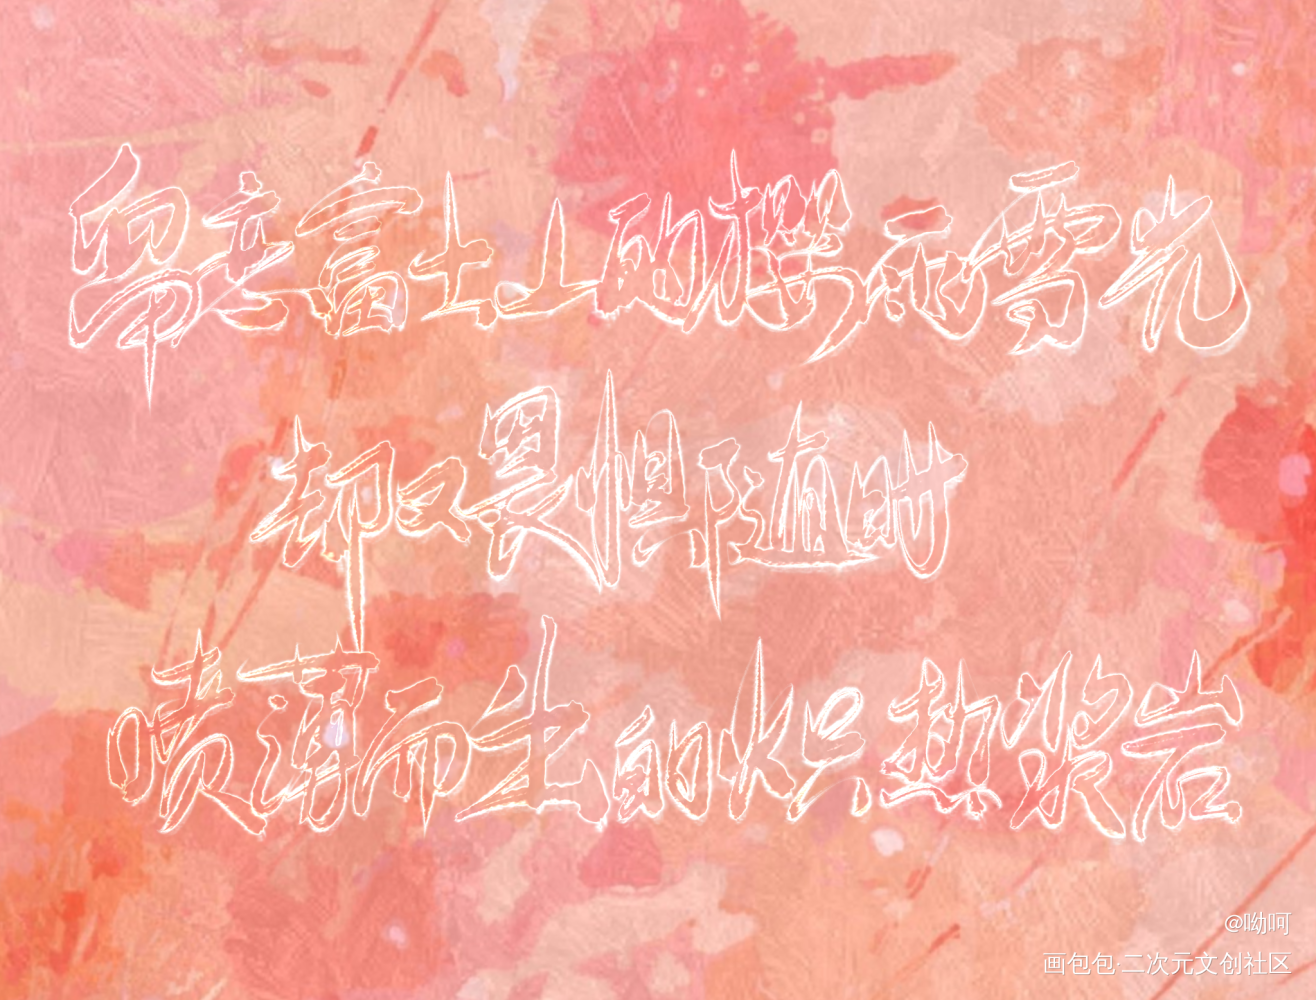 留恋富士山的樱雨雪光
却又畏惧那随时
喷薄而出的炽热浆岩
@呦呵
画包包·二次元文创社区